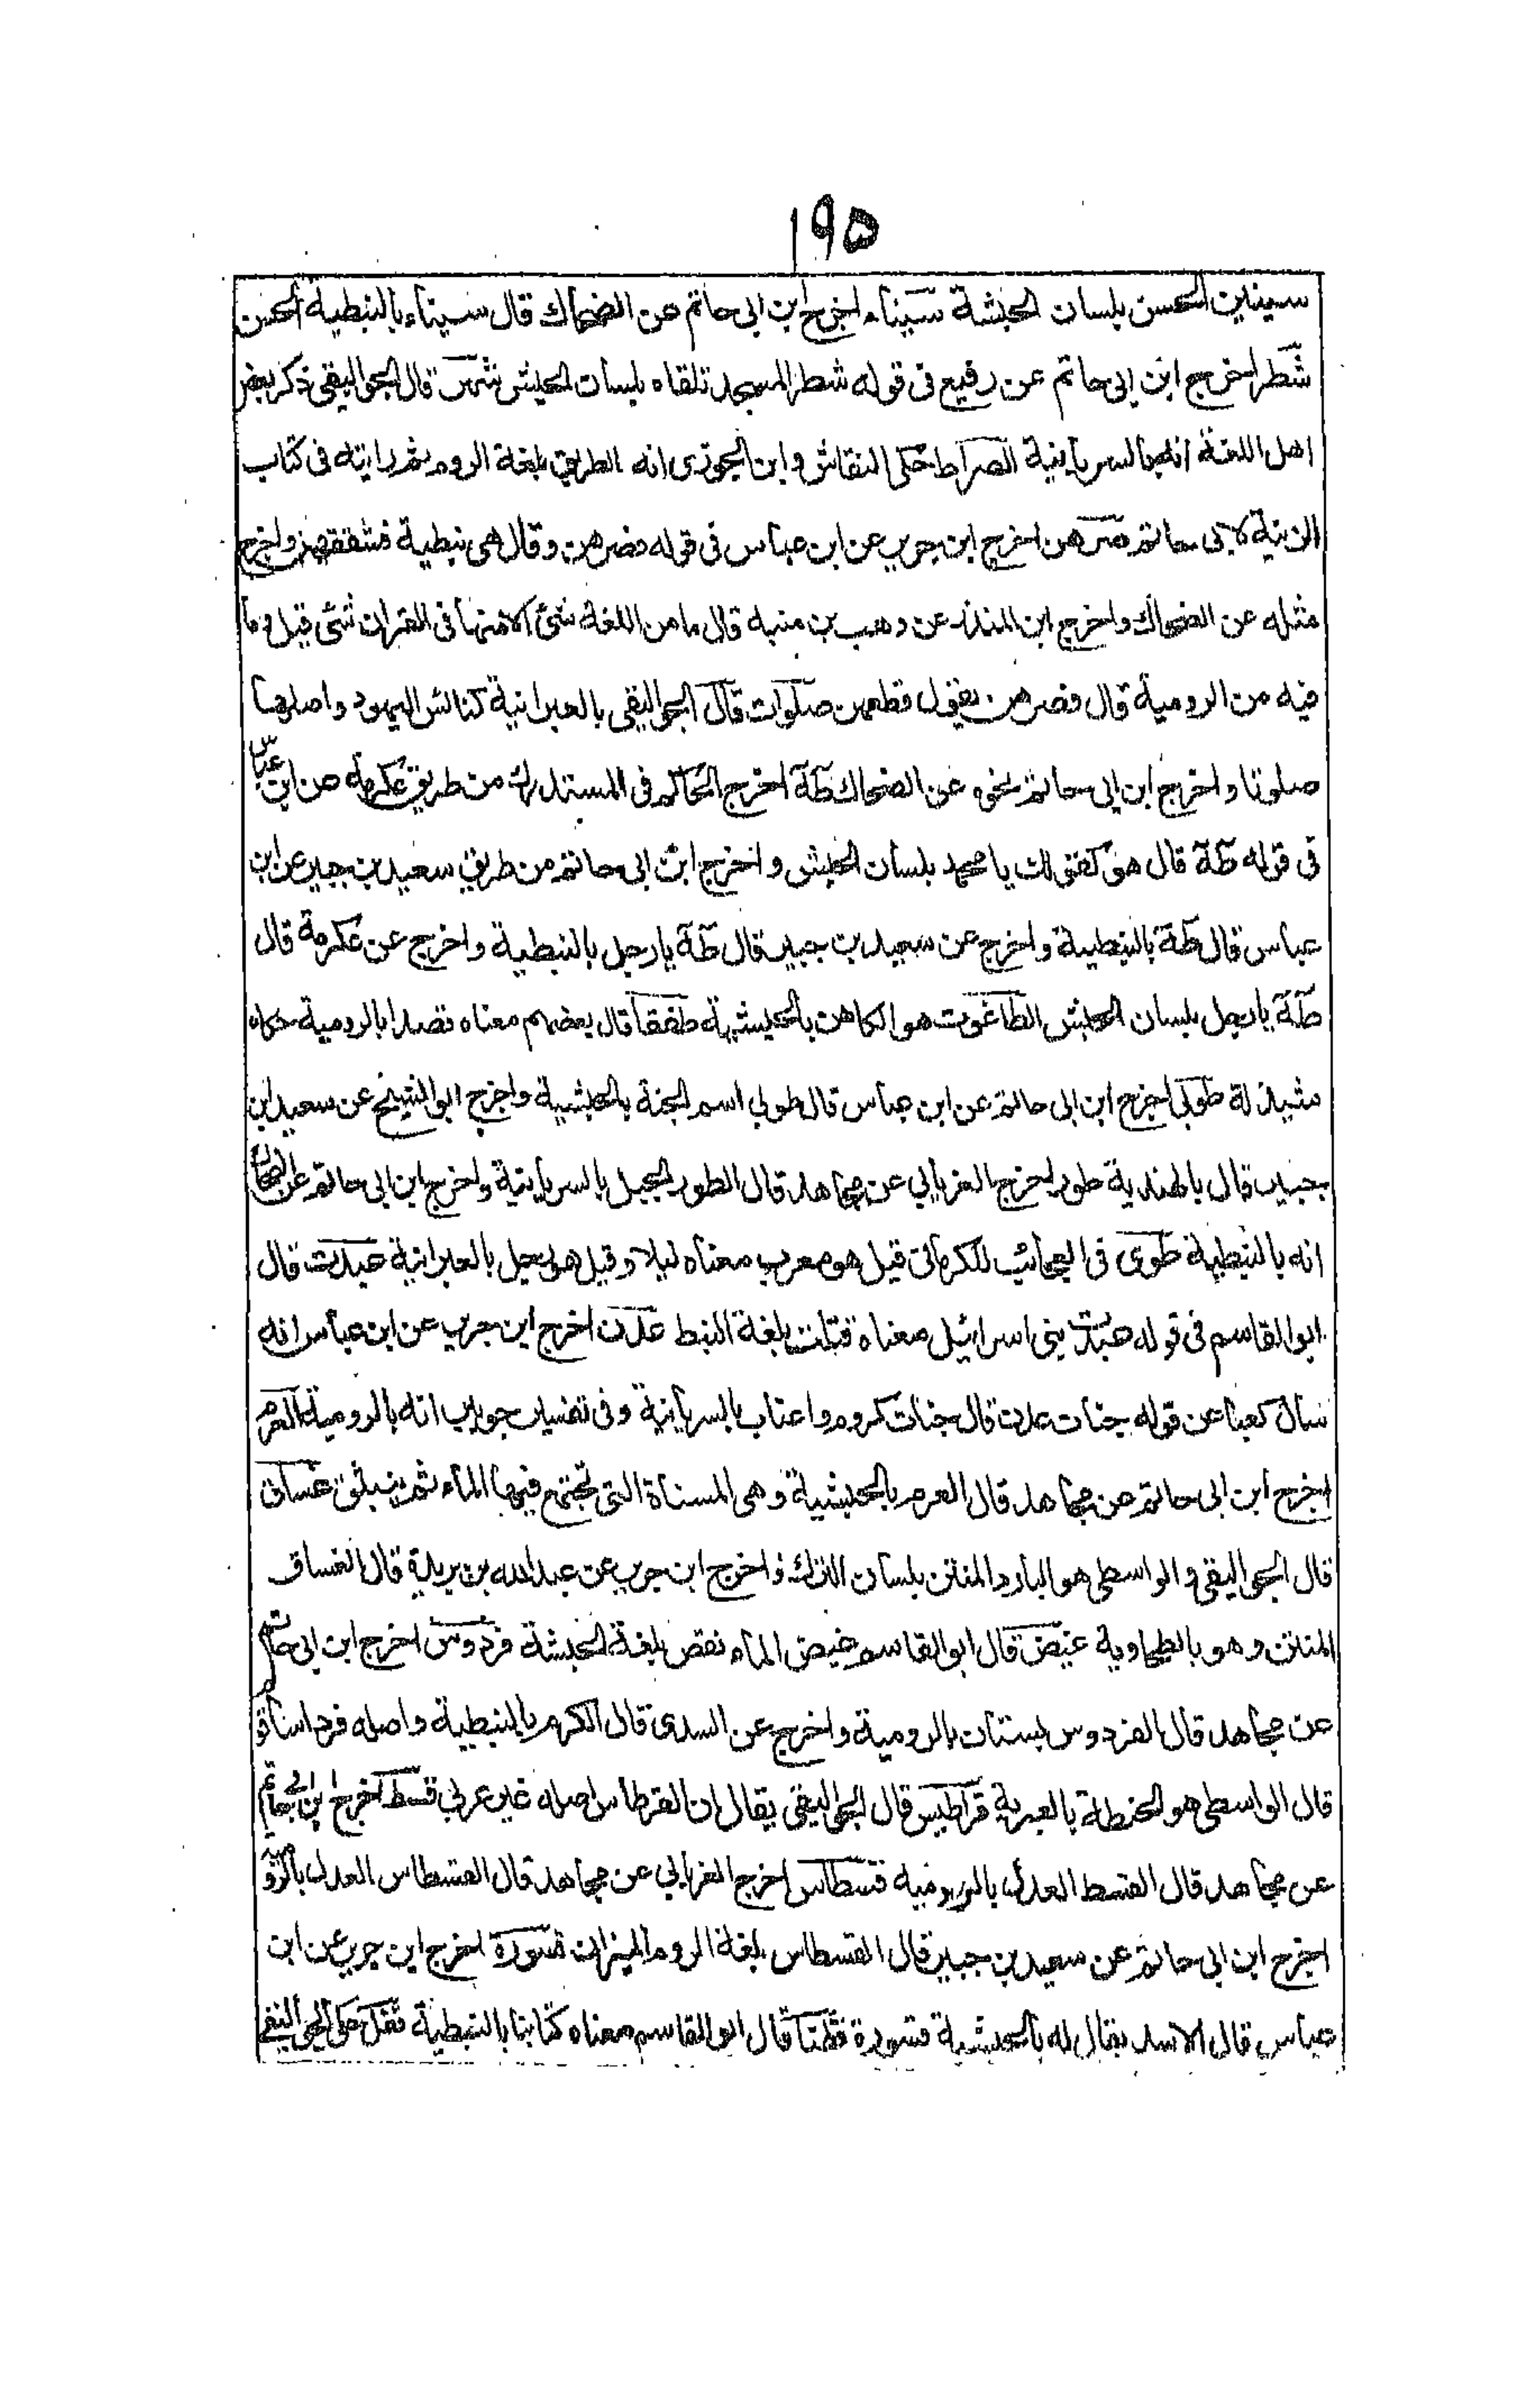 ١٩٥
سينين الحسن بلسان الحبشة سيناء اخرج ابن ابى حاتم عن الضحاك قال سيناء بالنبطية الحسن
شطر اخرج ابن ابى حاتم عن رفيع فى قوله شطر المسجد تلقاه بلسان الحبش شهر قال الجواليقى ذكر بعض
اهل اللغة انه بالسريانية الصراط حكى النقاش وابن الجوزى انه الطريق بلغة الروم ثم رايته فى كتاب
الزينة لابى حاتم صرهن اخرج ابن جرير عن ابن عباس فى قوله فصرهن وقال هى نبطية فشققهن واخرج
مثله عن الضحاك واخرج ابن المنذر عن وهب بن منبه قال ما من اللغة شئ الا منها فى القران شئ قيل وما
فيه من الرومية قال فصرهن يقول قطعهن صلوات قال الجواليقى بالعبرانية كنائس اليهود واصلها
صلوتا واخرج ابن ابى حاتم نحوه عن الضحاك طه اخرج الحاكم فى المستدرك من طريق عكرمة عن ابن عباس
فى قوله طه قال هو كقولك يا محمد بلسان الحبش واخرج ابن ابى حاتم من طريق سعيد بن جبير عن ابن
عباس قال طه بالنبطية واخرج عن سعيد بن جبير قال طه يا رجل بالنبطية واخرج عن عكرمة قال
طه يا رجل بلسان الحبش الطاغوت هو الكاهن بالحبشية طفقا قال بعضهم معناه قصدا بالرومية حكاه
شيذلة طوبى اخرج ابن ابى حاتم عن ابن عباس قال طوبى اسم الجنة بالحبشية واخرج ابو الشيخ عن سعيد ابن
جبير قال بالهندية طور اخرج الفريابي عن مجاهد قال الطور الجبل بالسريانية واخرج ابن ابى حاتم عن الضحاك
انه بالنبطية طوى فى العجائب للكرمانى قيل هو معرب معناه ليلا وقيل هو رجل بالعبرانية عبدت قال
ابو القاسم فى قوله عبدت بنى اسرائيل معناه قتلت بلغة النبط عدن اخرج ابن جرير عن ابن عباس انه
سال كعبا عن قوله جنات عدن قال جنات كروم واعناب بالسريانية وفى تفسير جويبر انه بالرومية العرم
اخرج ابن ابى حاتم عن مجاهد قال العرم بالحبشية وهى المسناة التى تجتمع فيها الماء ثم ينبثق غساق
قال الجواليقى والواسطى هو البارد المنتن بلسان الترك واخرج ابن جرير عن عبدالله بن بريدة قال الغساق
المنتن وهو بالطحاوية غيض قال ابو القاسم غيض الماء نقص بلغة الحبشة فردوس اخرج ابن ابى حاتم
عن مجاهد قال الفردوس بستان بالرومية واخرج عن السدى قال الكرم بالنبطية واصله فرداسا فو
قال الواسطى هو الحنطة بالعبرية قراطيس قال الجواليقى يقال ان القرطاس اصله غير عربي قسط اخرج ابن ابى حاتم
عن مجاهد قال القسط العدل بالرومية قسطاس اخرج الفريابي عن مجاهد قال القسطاس العدل بالرومية
اخرج ابن ابى حاتم عن سعيد بن جبير قال القسطاس بلغة الروم الميزان قسورة اخرج ابن جرير عن ابن
عباس قال الاسد يقال له بالحبشية قسورة قطنا قال ابو القاسم معناه كتابنا بالنبطية قفل حكى الجواليقى